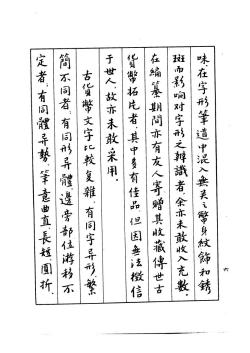 味，在字形筆道中混入無关之幣身紋飾和銹
斑而影响对字形之辨識者，余亦未敢收入充數。
在編纂期間亦有友人寄贈其收藏傳世古
貨幣拓片者，其中多有佳品，但因無法徵信
于世人，故亦未敢采用。
古貨幣文字比較复雜，有同字异形，繁
簡不同者，有同形异體，邊旁部位游移不
定者，有同體异勢，筆意曲直，長短，圓折，
六